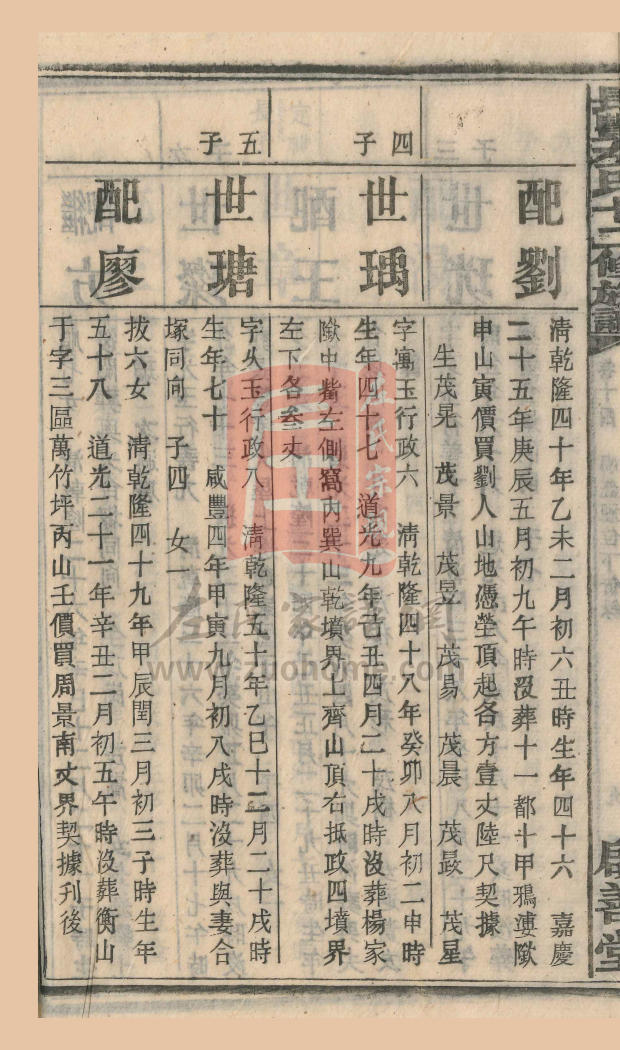 配劉
清乾隆四十年乙未二月初六丑時生年四十六 嘉慶
二十五年庚辰五月初九午時沒葬十一都斗甲鴉凄歘
申山寅價買劉人山地憑塋頂起各方壹丈陸尺契據
生茂晃 茂景 茂昱 茂易 茂晨 茂晸 茂星
四子
世瑀
字寓玉行政六 清乾隆四十八年癸卯八月初二申時
生年四十七 道光九年己丑四月二十戌時沒葬楊家
歘中嘴左側窩內巽山乾墳界上齊山頂右抵政四墳界
左下各叁丈
五子
世瑭
字久玉行政八 清乾隆五十年乙巳十二月二十戌時
生年七十 咸豐四年甲寅九月初八戌時沒葬與妻合
塚同向 子四 女一
配廖
拔六女 清乾隆四十九年甲辰閏三月初三子時生年
五十八 道光二十一年辛丑二月初五午時沒葬衡山
于字三區萬竹坪丙山壬價買周景南丈界契據刊後
左氏家譜網
www.zuohome.com